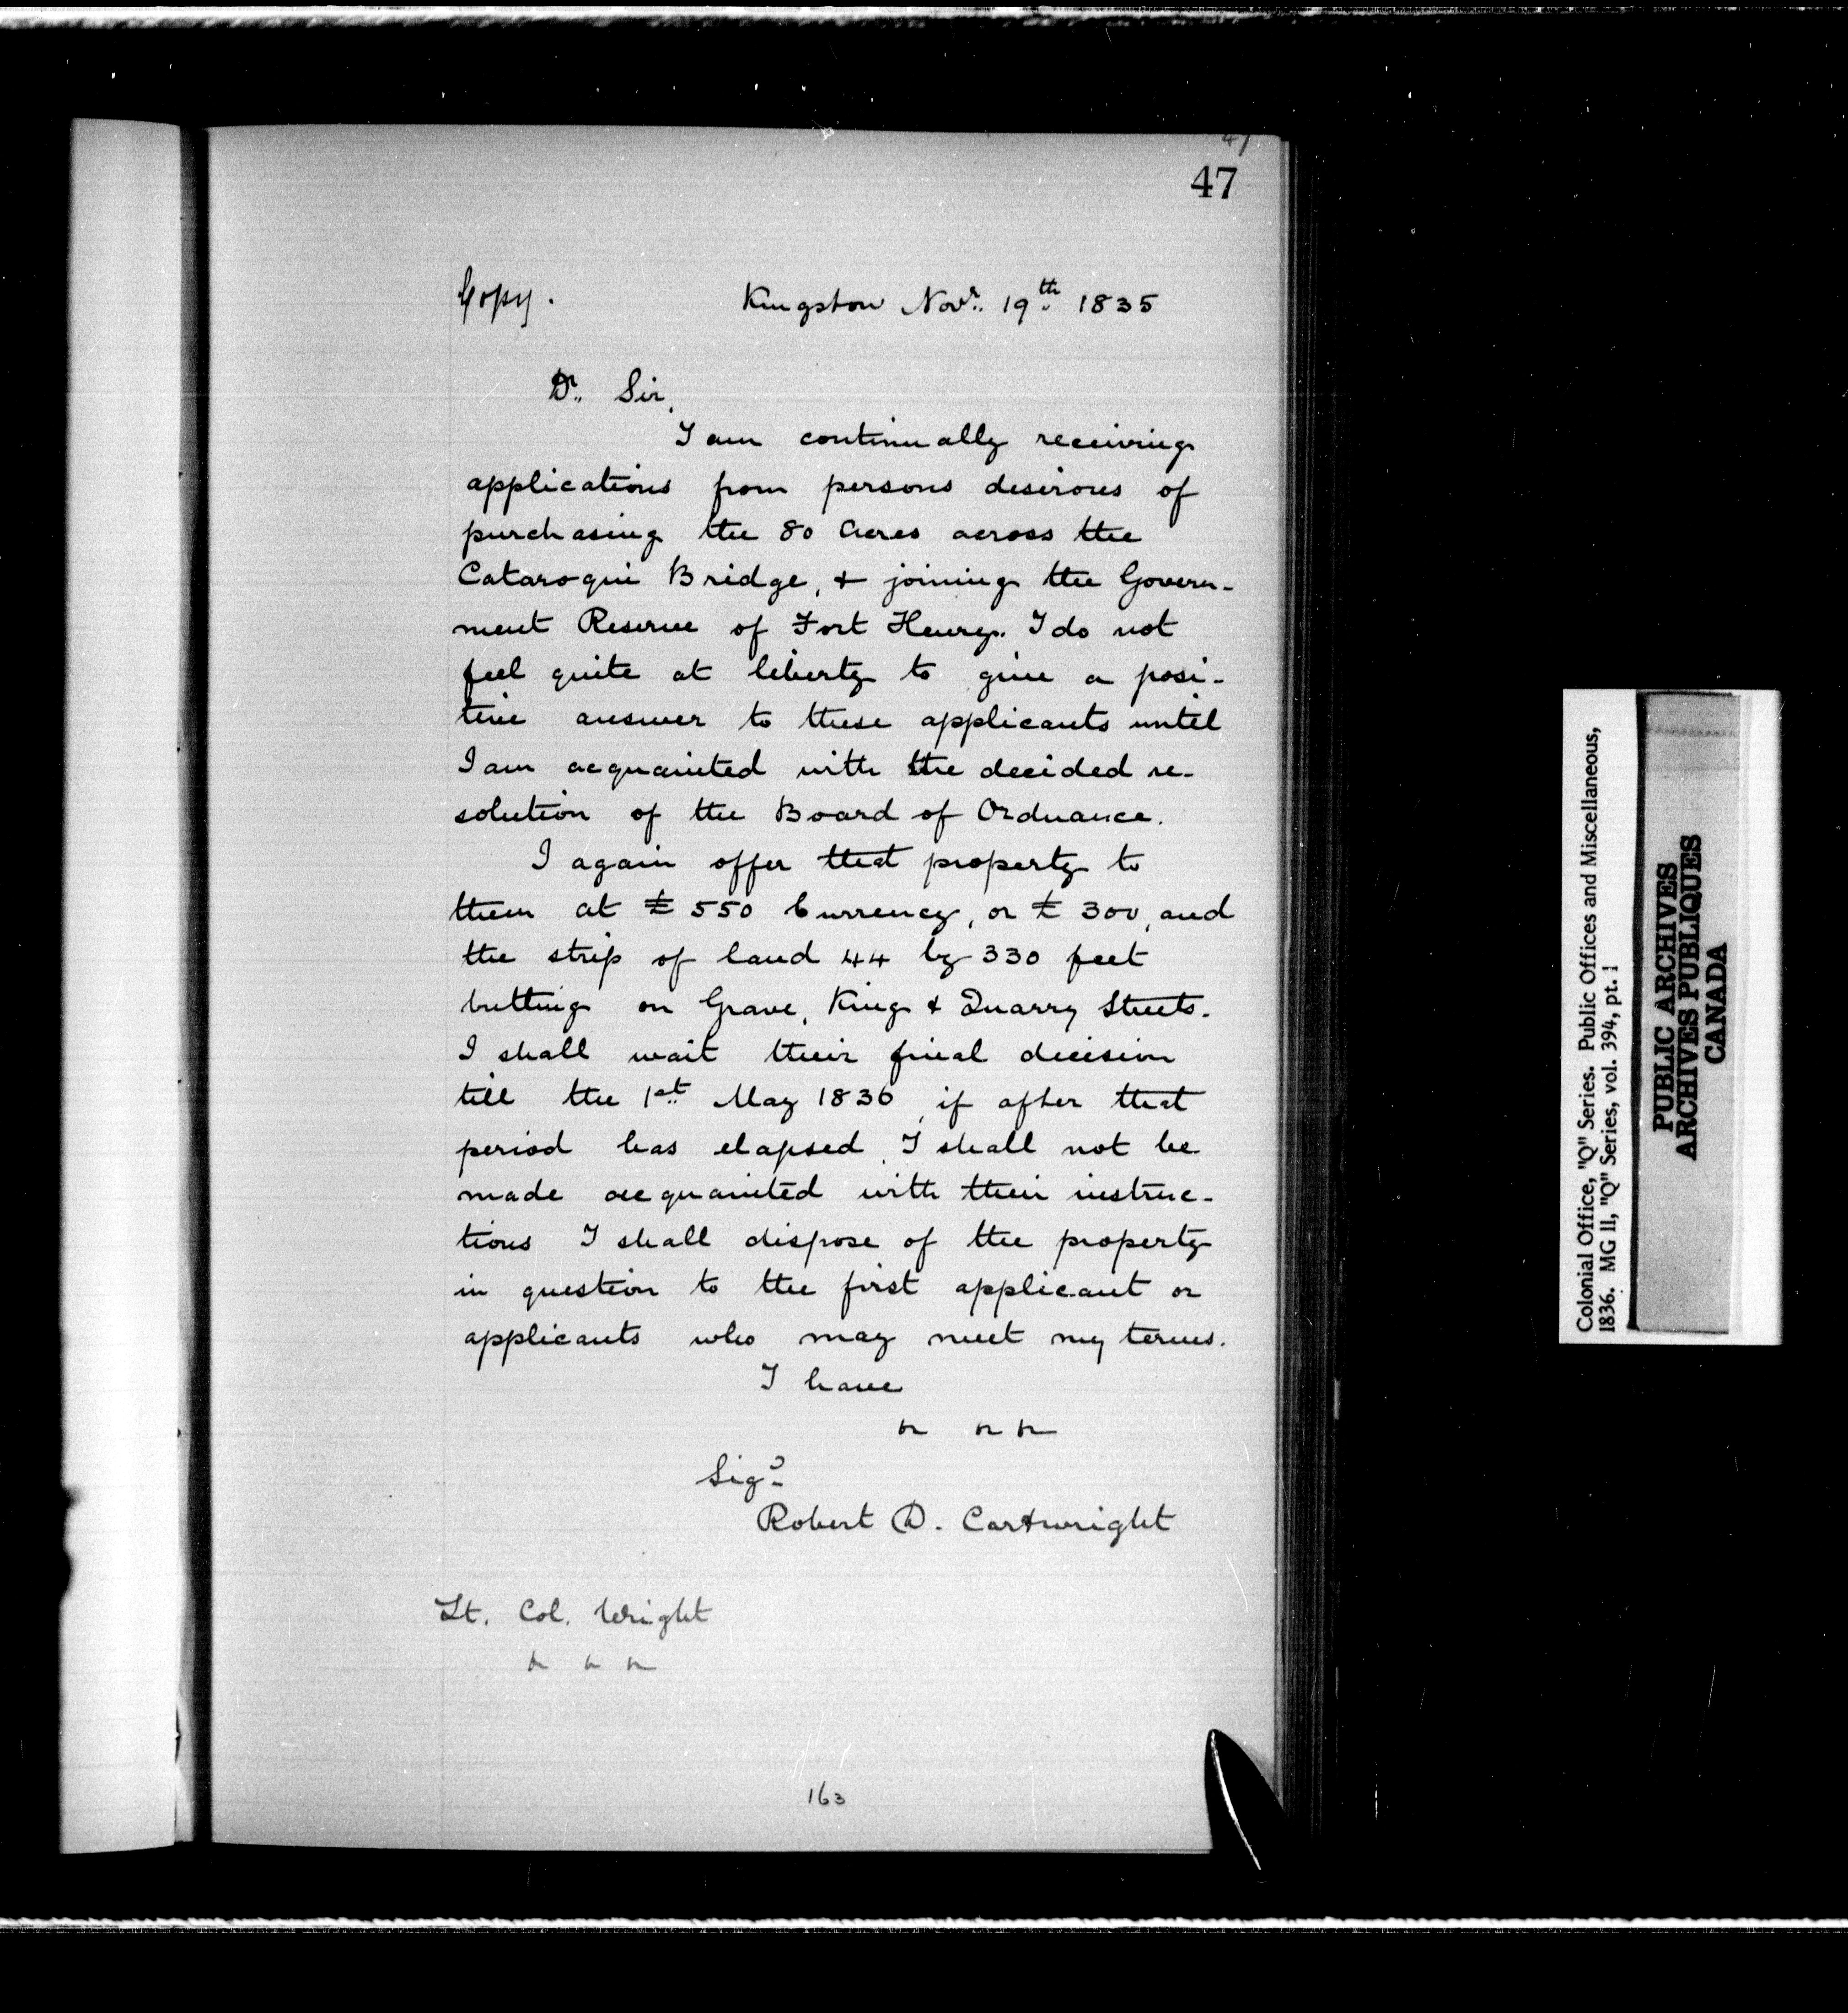 47
47
Copy. Kingston Novr. 19th 1835
Dr. Sir,
I am continually receiving
applications from persons desirous of
purchasing the 80 Acres across the
Cataroqui Bridge, & joining the Govern-
ment Reserve of Fort Henry. I do not
feel quite at liberty to give a posi-
tive answer to these applicants until
I am acquainted with the decided re-
solution of the Board of Ordnance.
I again offer that property to
them at £550 Currency, or £300, and
the strip of land 44 by 330 feet
butting on Grave, King & Quarry Streets.
I shall wait their final decision
till the 1st May 1836, if after that
period has elapsed, I shall not be
made acquainted with their instruc-
tions I shall dispose of the property
in question to the first applicant or
applicants who may meet my terms.
I have
Sigd
Robert D. Cartwright
Lt. Col. Wright
163
Colonial Office, "Q" Series. Public Offices and Miscellaneous,
1836. MG 11, "Q" Series, vol. 394, pt. 1
PUBLIC ARCHIVES
ARCHIVES PUBLIQUES
CANADA